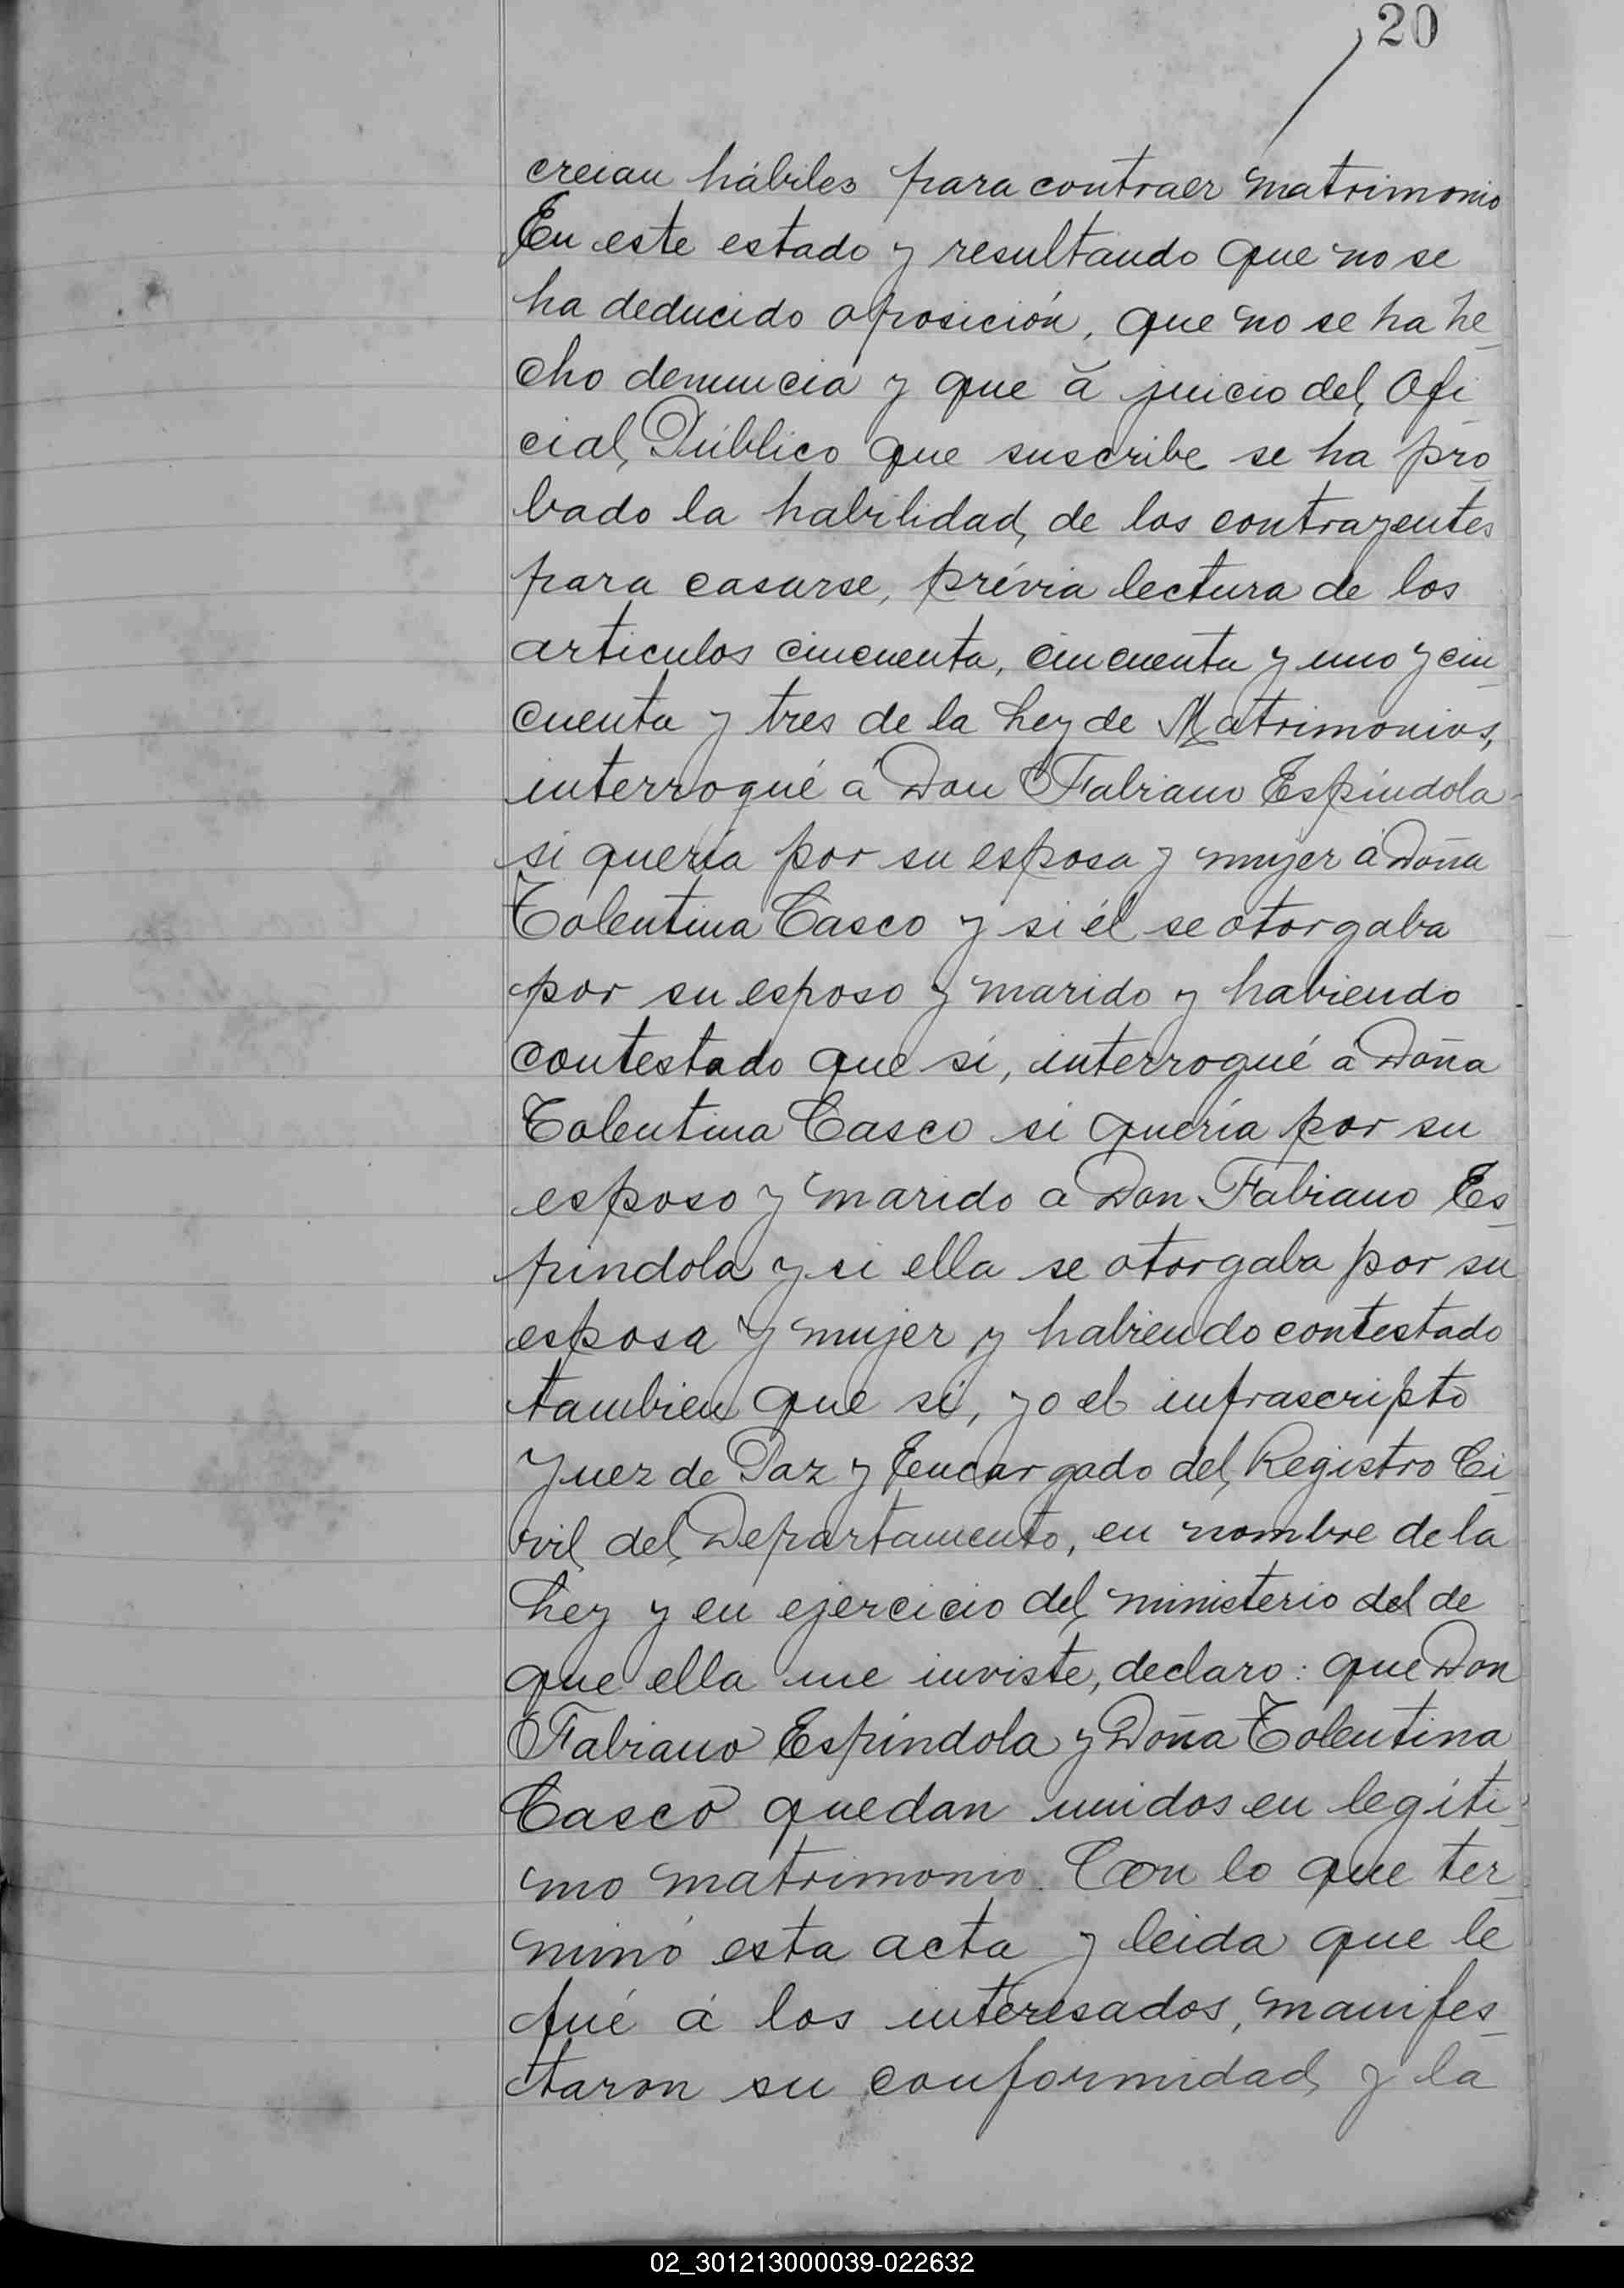 20
creian hábiles para contraer matrimonio
En este estado y resultando que no se
ha deducido oposición, que no se ha he_
cho denuncia y que á juicio del Ofi_
cial Público que suscribe se ha pro_
bado la habilidad de los contrayentes
para casarse, prévia lectura de los
articulos cincuenta, cincuenta y uno y cin_
cuenta y tres de la Ley de Matrimonios,
interrogué á Don Fabiano Espíndola
si quería por su esposa y mujer á Doña
Tolentina Casco y si él se otorgaba
por su esposo y marido y habiendo
contestado que si, interrogué á Doña
Tolentina Casco si quería por su
esposo y marido a Don Fabiano Es_
pindola y si ella se otorgaba por su
esposa y mujer y habiendo contestado
tambien que si, yo el infrascripto
Juez de Paz y Encargado del Registro Ci_
vil del Departamento, en nombre de la
Ley y en ejercicio del ministerio del de
que ella me inviste, declaro: que Don
Fabiano Espíndola y Doña Tolentina
Casco quedan unidos en legíti_
mo matrimonio. Con lo que ter_
minó esta acta y leida que le
fué á los interesados, manifes_
taron su conformidad y la
02_301213000039-022632